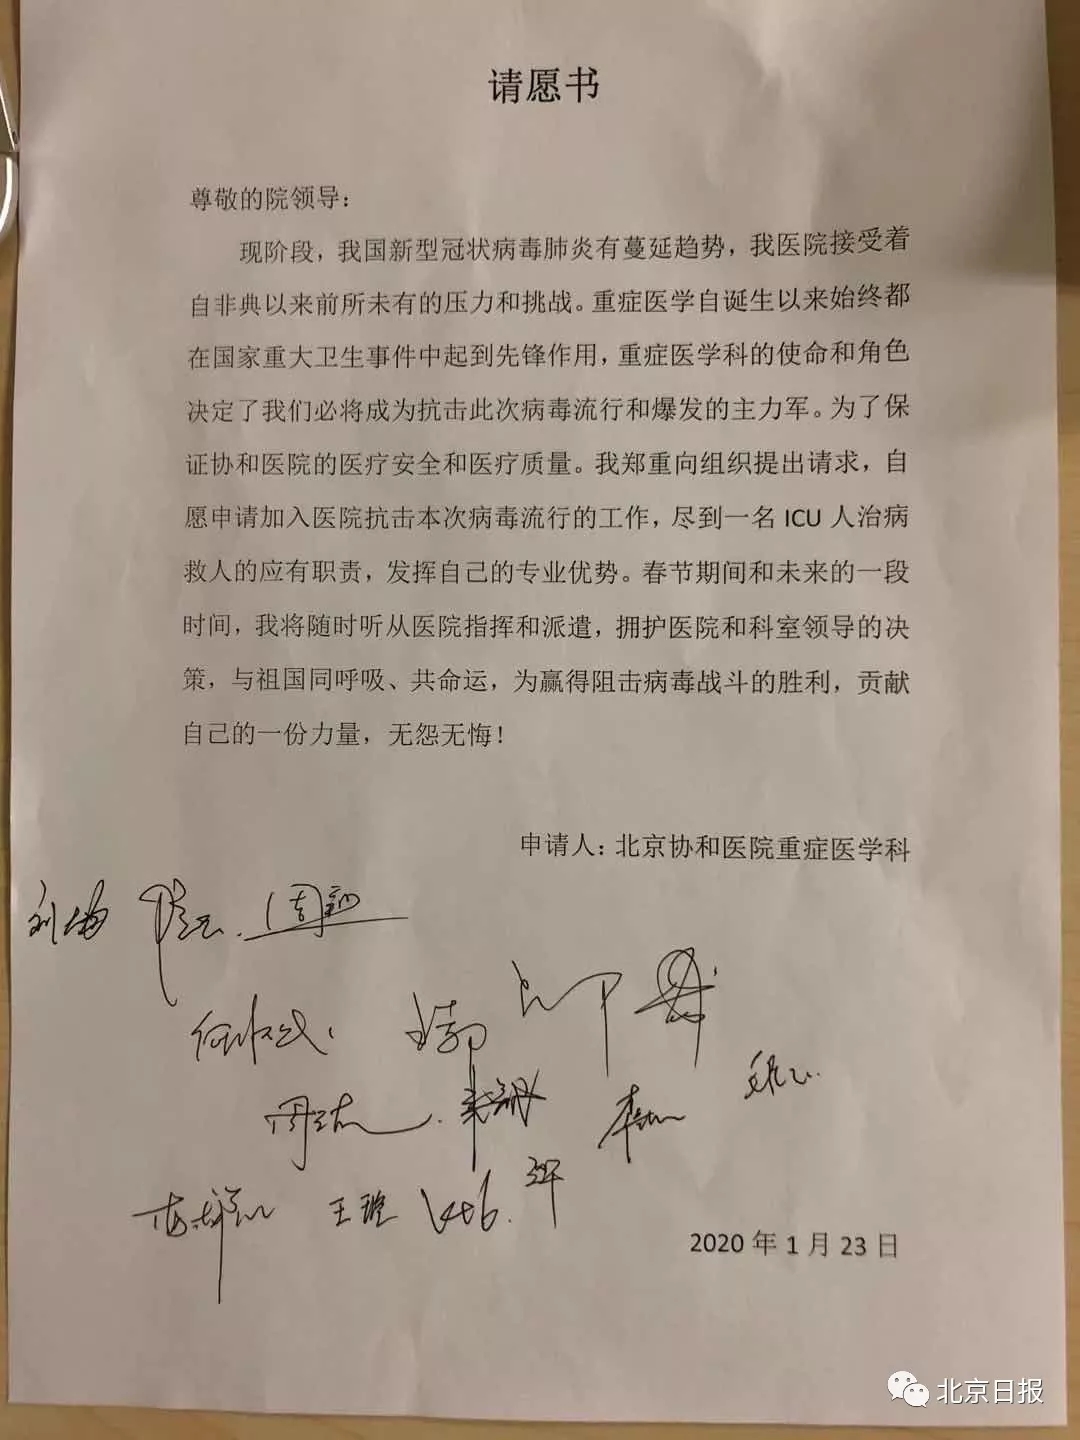 请愿书
尊敬的院领导：
现阶段，我国新型冠状病毒肺炎有蔓延趋势，我医院接受着
自非典以来前所未有的压力和挑战。重症医学自诞生以来始终都
在国家重大卫生事件中起到先锋作用，重症医学科的使命和角色
决定了我们必将成为抗击此次病毒流行和爆发的主力军。为了保
证协和医院的医疗安全和医疗质量。我郑重向组织提出请求，自
愿申请加入医院抗击本次病毒流行的工作，尽到一名 ICU 人治病
救人的应有职责，发挥自己的专业优势。春节期间和未来的一段
时间，我将随时听从医院指挥和派遣，拥护医院和科室领导的决
策，与祖国同呼吸、共命运，为赢得阻击病毒战斗的胜利，贡献
自己的一份力量，无怨无悔！
申请人：北京协和医院重症医学科
王璇
2020 年 1 月 23 日
北京日报